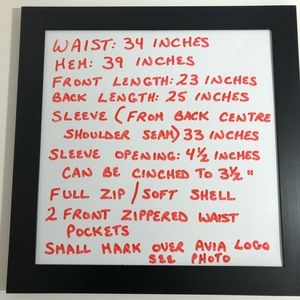 WAIST: 34 INCHES
HEM: 39 INCHES
FRONT LENGTH: 23 INCHES
BACK LENGTH: 25 INCHES
SLEEVE (FROM BACK CENTRE
SHOULDER SEAM) 33 INCHES
SLEEVE OPENING: 4½ INCHES
CAN BE CINCHED TO 3½"
FULL ZIP / SOFT SHELL
2 FRONT ZIPPERED WAIST
POCKETS
SMALL MARK OVER AVIA LOGO
SEE PHOTO